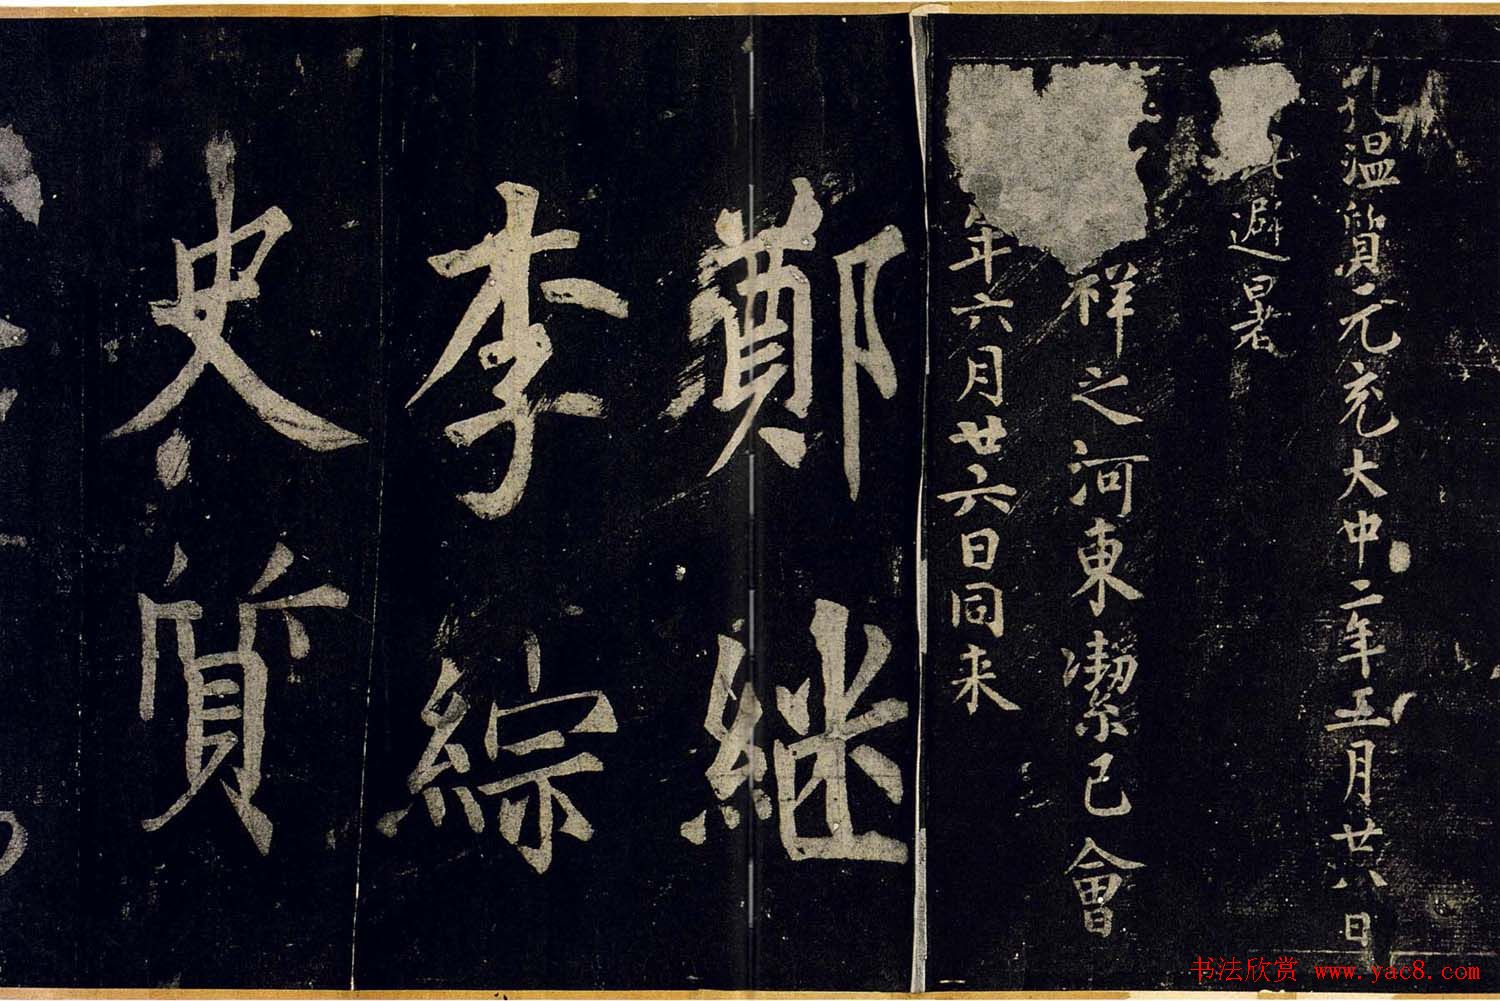 温質元充大中二年五月廿八日
避暑
祥之河東㓗已會
年六月廿六日同来
鄭継
李綜
史質
书法欣赏 www.yac8.com